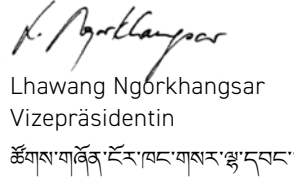 L. Ngorkhangsar
Lhawang Ngorkhangsar
Vizepräsidentin
ཚོགས་གཞོན་ངོར་ཁང་གསར་ལྷ་དབང་